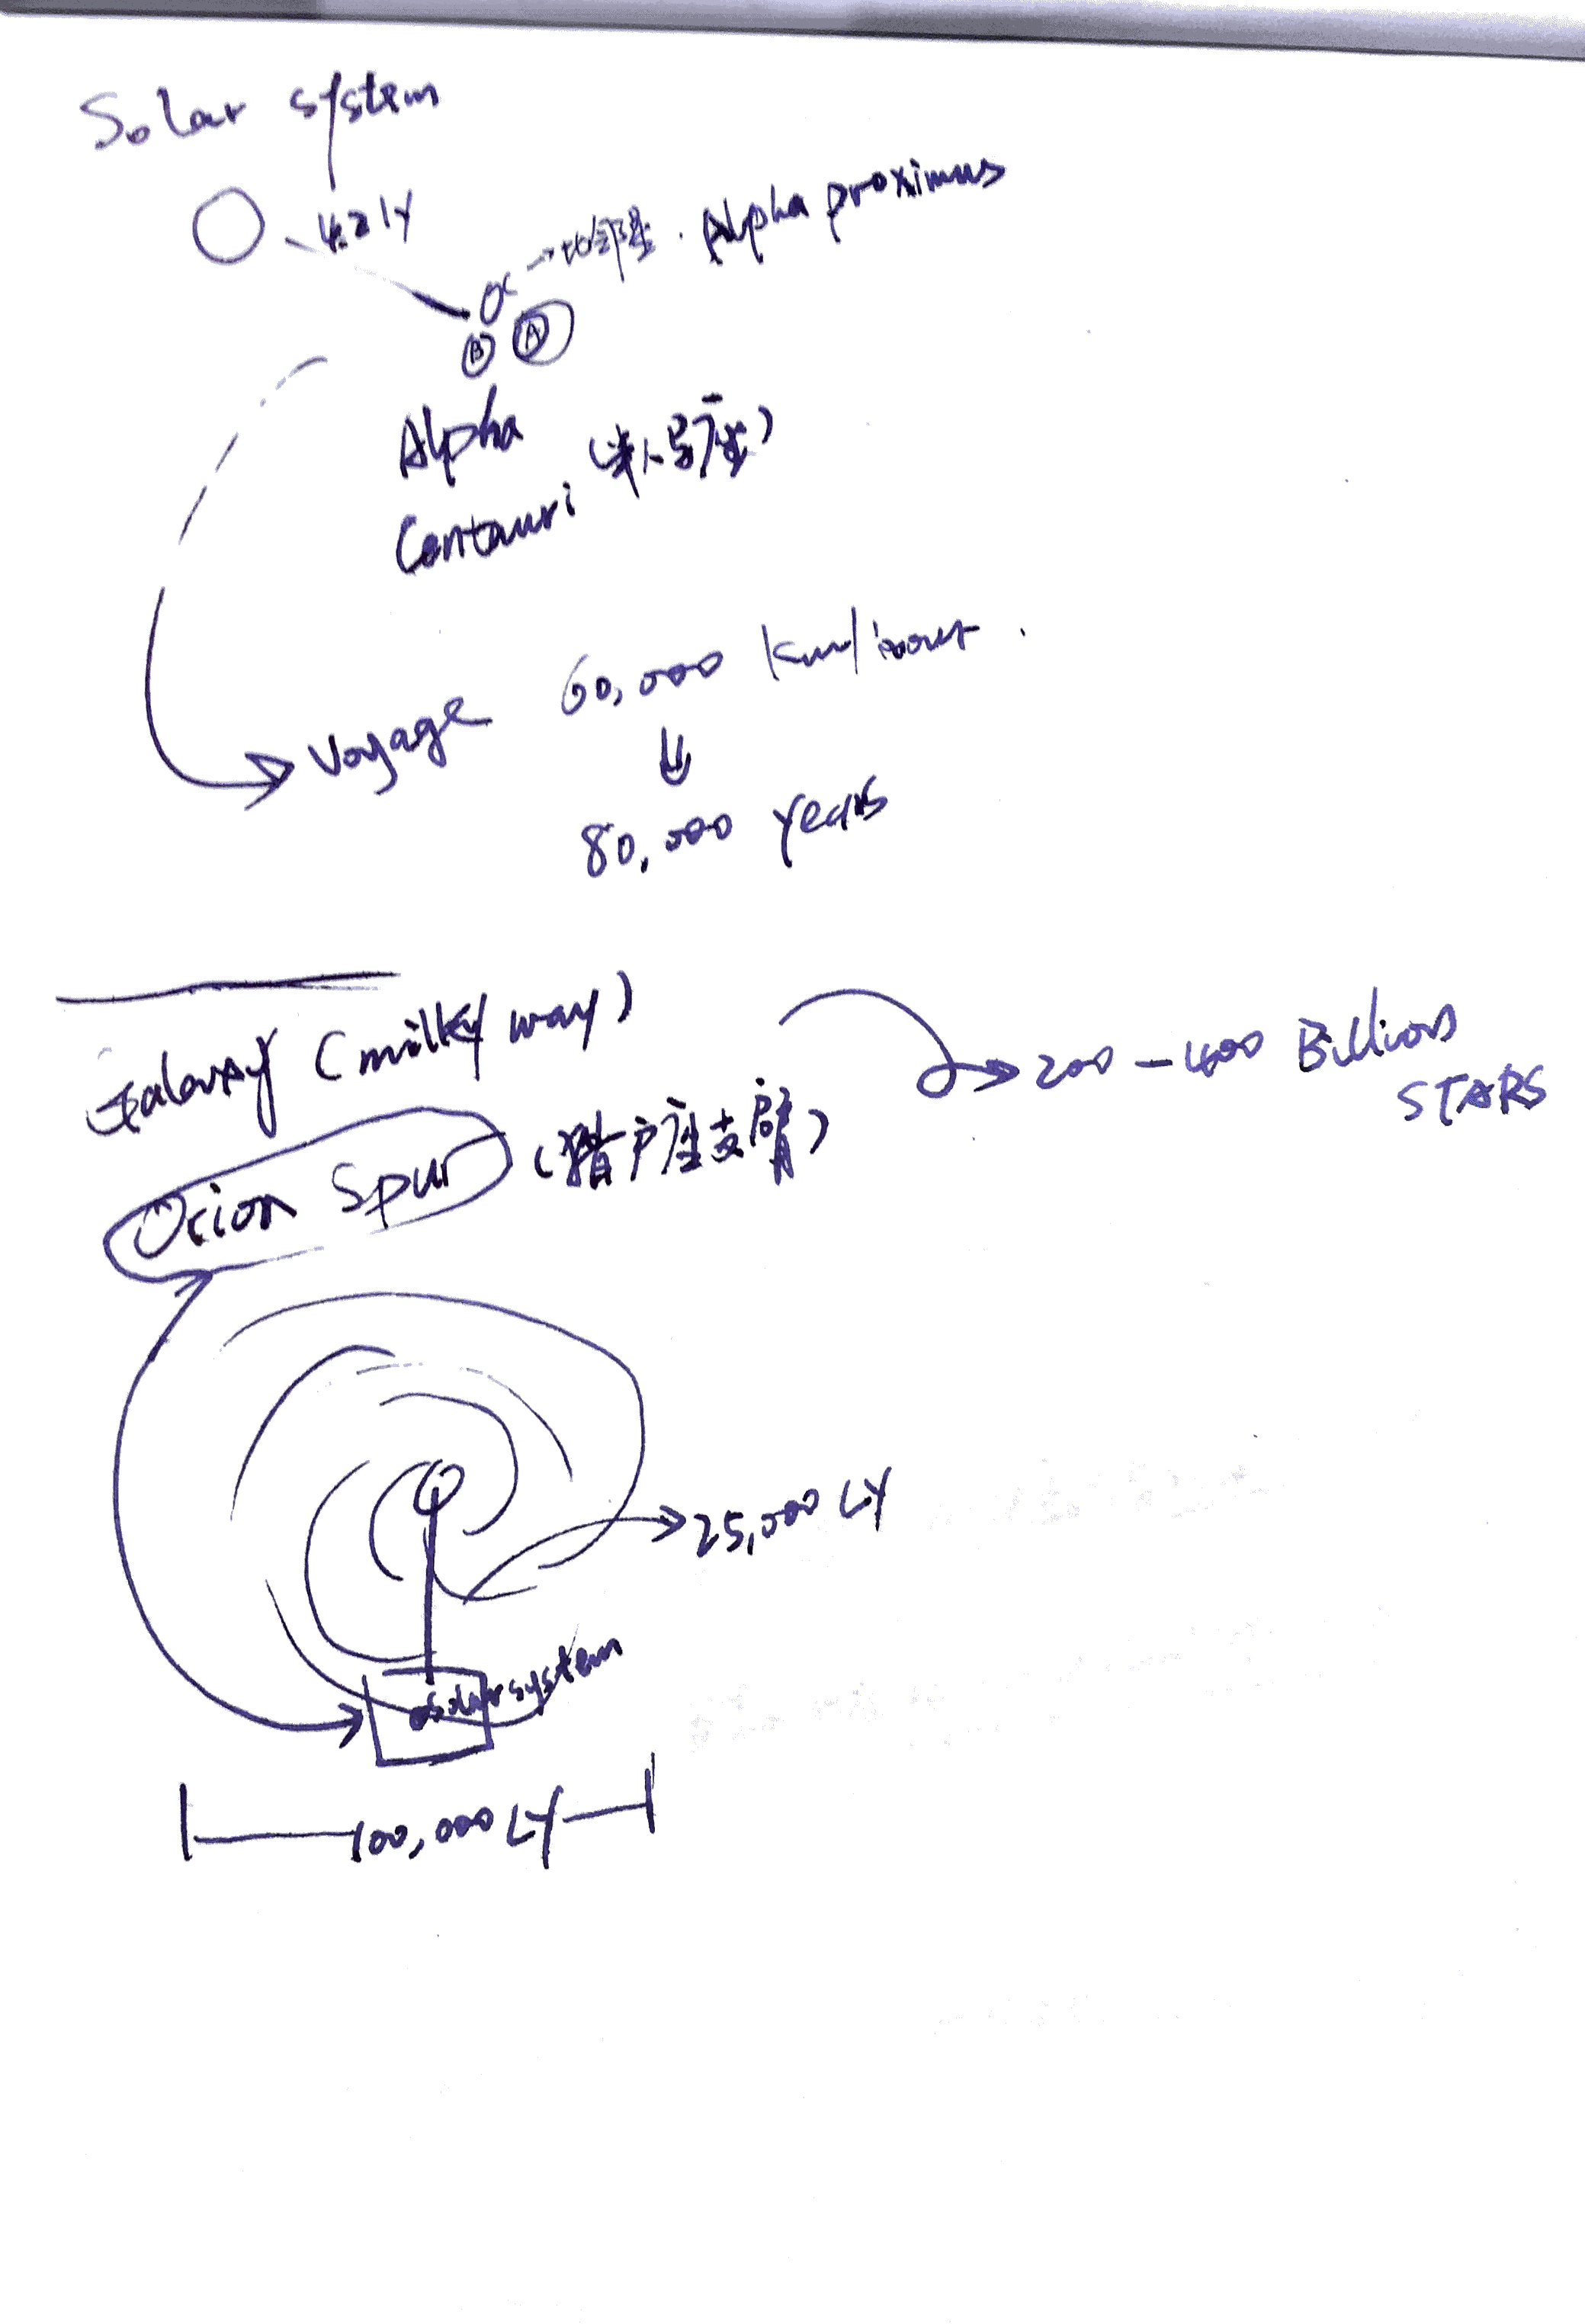 Solar system
4.2 ly
比邻星. Alpha proximus
B A
Alpha
Centauri
Voyage 60,000 km/hour.
80,000 years
Galaxy (milky way)
200-400 Billion
STARS
Orion Spur (猎户座支臂)
25,000 LY
solar system
100,000 LY